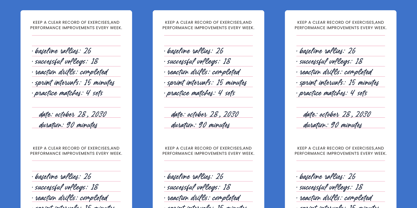 KEEP A CLEAR RECORD OF EXERCISES,AND
PERFORMANCE IMPROVEMENTS EVERY WEEK.
· baseline rallies: 26
· successful volleys: 18
· reaction drills: completed
· sprint intervals: 15 minutes
· practice matches: 4 sets
date: october 28, 2030
duration: 90 minutes
KEEP A CLEAR RECORD OF EXERCISES,AND
PERFORMANCE IMPROVEMENTS EVERY WEEK.
· baseline rallies: 26
· successful volleys: 18
· reaction drills: completed
· sprint intervals: 15 minutes
KEEP A CLEAR RECORD OF EXERCISES,AND
PERFORMANCE IMPROVEMENTS EVERY WEEK.
· baseline rallies: 26
· successful volleys: 18
· reaction drills: completed
· sprint intervals: 15 minutes
· practice matches: 4 sets
date: october 28, 2030
duration: 90 minutes
KEEP A CLEAR RECORD OF EXERCISES,AND
PERFORMANCE IMPROVEMENTS EVERY WEEK.
· baseline rallies: 26
· successful volleys: 18
· reaction drills: completed
· sprint intervals: 15 minutes
KEEP A CLEAR RECORD OF EXERCISES,AND
PERFORMANCE IMPROVEMENTS EVERY WEEK.
· baseline rallies: 26
· successful volleys: 18
· reaction drills: completed
· sprint intervals: 15 minutes
· practice matches: 4 sets
date: october 28, 2030
duration: 90 minutes
KEEP A CLEAR RECORD OF EXERCISES,AND
PERFORMANCE IMPROVEMENTS EVERY WEEK.
· baseline rallies: 26
· successful volleys: 18
· reaction drills: completed
· sprint intervals: 15 minutes